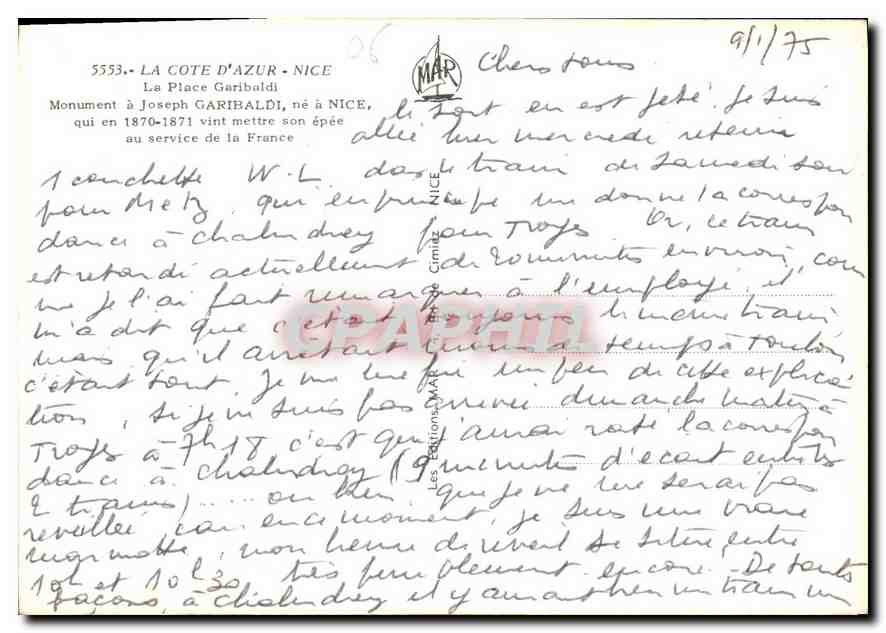 5553.- LA COTE D'AZUR - NICE
La Place Garibaldi
Monument à Joseph GARIBALDI, né à NICE,
qui en 1870-1871 vint mettre son épée
au service de la France
06
MAR
9/1/75
Chers tous
le sort en est jeté. Je suis
allée hier mercredi retenir
1 couchette W.L. dans le train de samedi soir
pour Metz, qui en principe me donne la correspon
dance à Chalindrey pour Troyes. Or, ce train
est retardé actuellement de 20 minutes environ, com
me je l'ai fait remarquer à l'employé, il
m'a dit que c'était toujours le même train,
mais qu'il arrêtait moins de temps à Toulon
c'était tout. Je me méfie un peu de cette explica
tion, si je ne suis pas arrivée dimanche matin à
Troyes à 7h18 c'est que j'aurai raté la correspon
dance à Chalindrey (9 minutes d'écart entre les
2 trains) ..... ou bien que je ne me serai pas
réveillée, car en ce moment, je suis une vraie
marmotte, mon heure de réveil se situe entre
10h et 10h30 très péniblement encore. De toutes
façons, à Chalindrey il y aurait bien un train un
Les Editions MAR - Cimiez - NICE
CPAPHIL